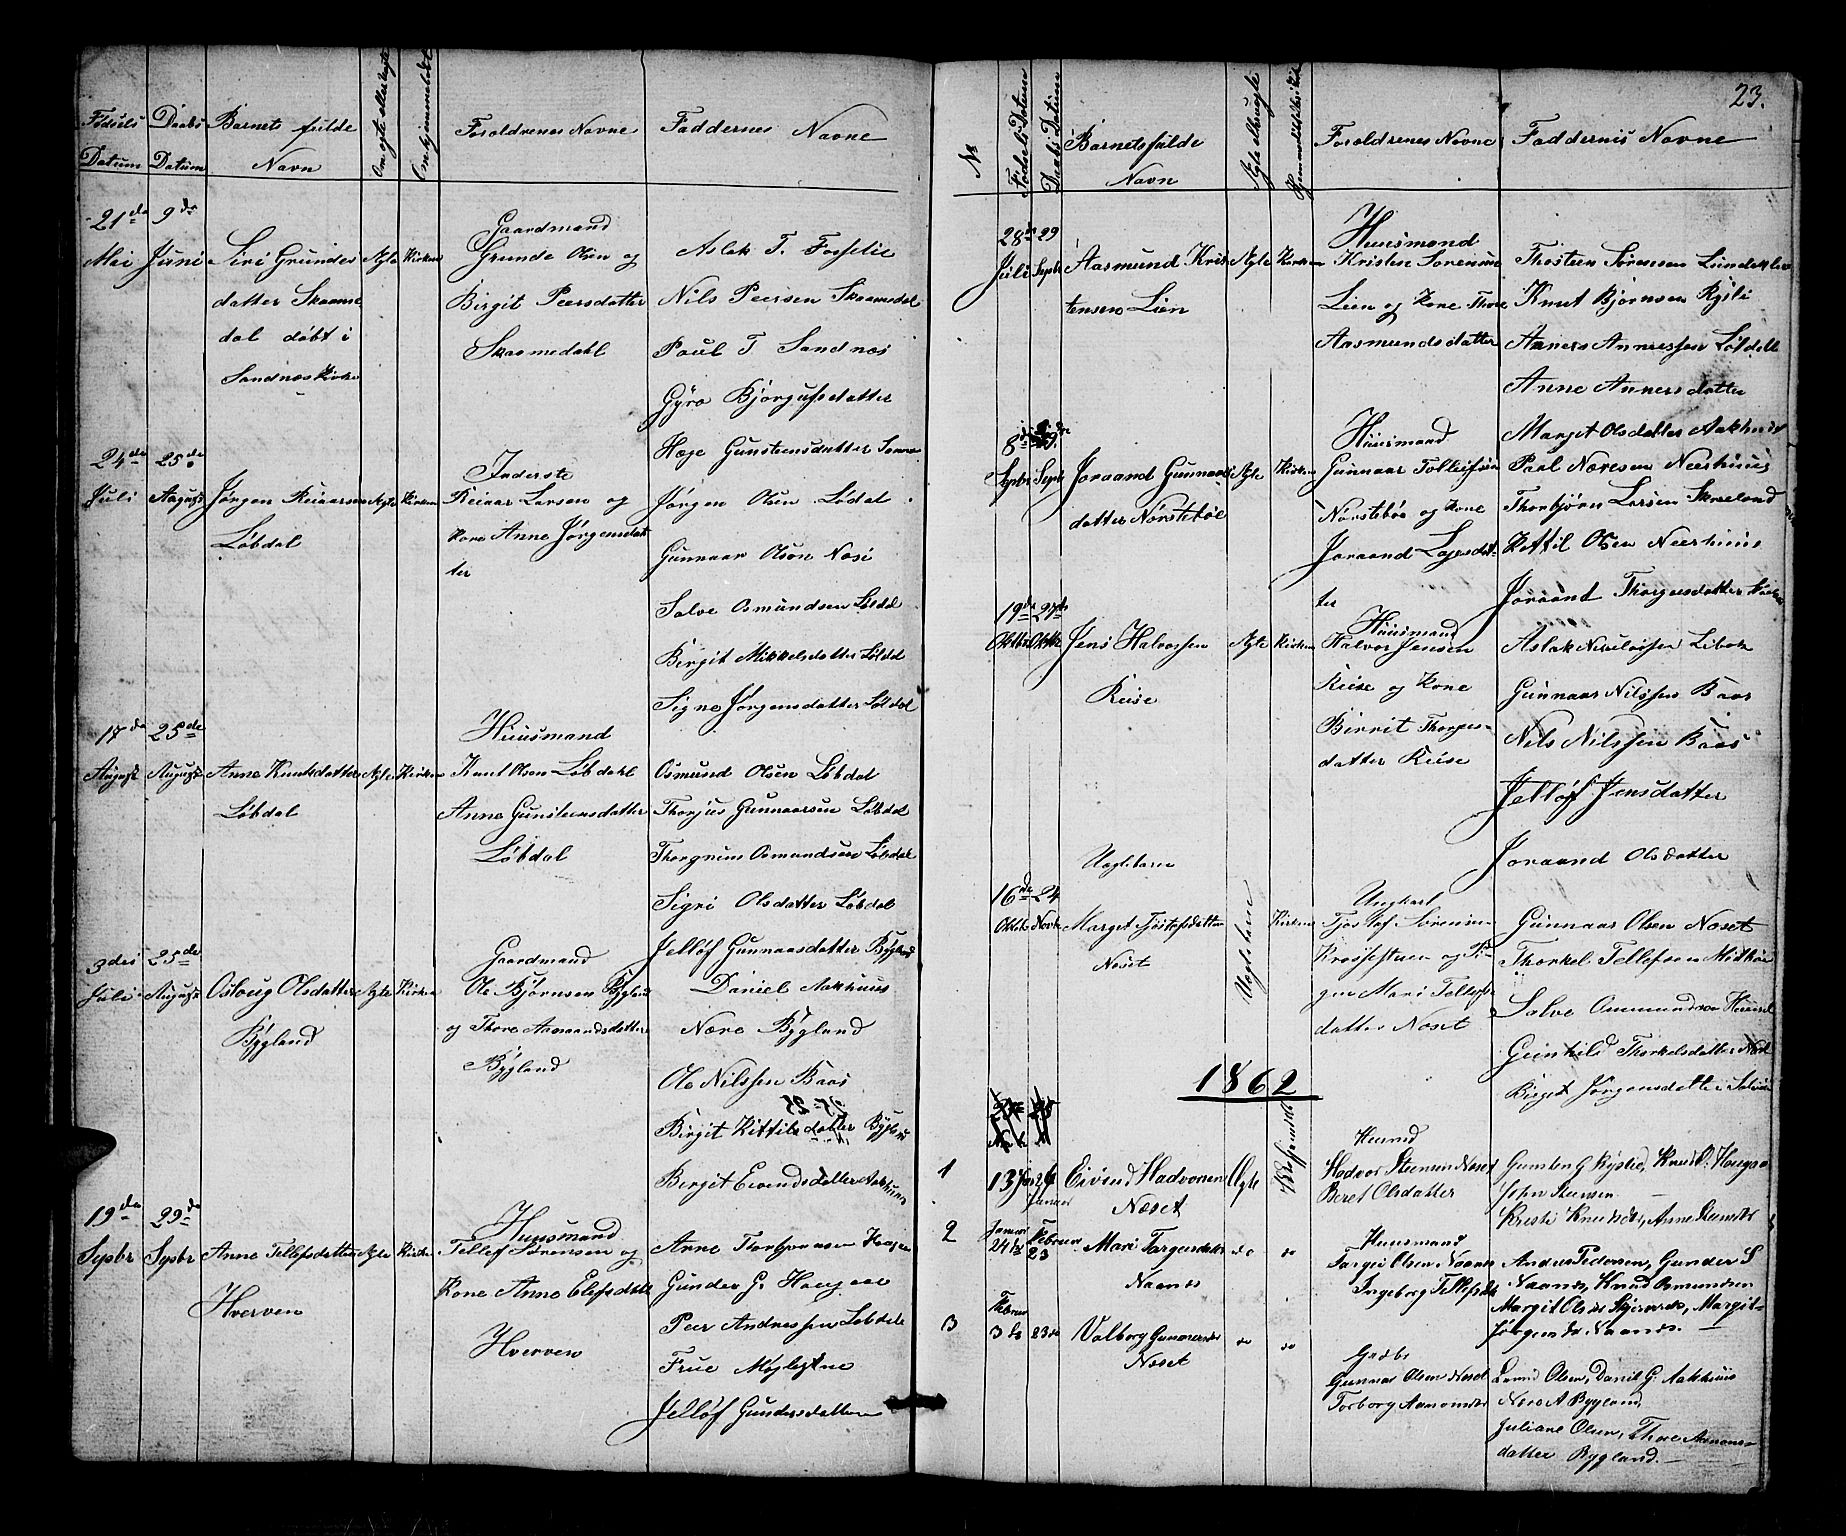 Fødsels Datum
Daabs Datum
Barnets fulde Navn
Om ægte eller uægte
Om hjemmedøbt
Foroldrenes Navne
Faddernes Navne
21de Mai
9de Juni
Siri Grundes
datter Skaamedal
døbt i
Sandnæs Kirke
Ægte
Kirken
Gaardmand
Grunde Olsen og
Birgit Peersdatter
Skaamedahl
Aslak T. Fosselie
Nils Peersen Skaamedal
Poul T Sandnæs
Gyro Bjørgufsdatter
Hæge Gunsteensdatter
24de Juli
25de August
Jørgen Reiaarsen
Løbdal
Ægte
Kirken
Inderste
Reiaar Larsen og
kone Anne Jørgensdat
ter
Jørgen Olsen Løbdal
Gunnaar Olson
Salve Osmundsen Løbdal
Birgit Mikkelsdatter Løbdal
Signe Jørgensdatter Løbdal
17de August
25de August
Anne Knutsdatter
Løbdal
Ægte
Kirken
Huusmand
Knut Olsen Løbdahl
Anne Gunsteensdatter
Løbdal
Osmund Olsen Løbdal
Thorjus Gunnaarsen Løbdal
Thorgrim Osmundsen Løbdal
Sigri Olsdatter Løbdal
Jelløf Gunnaasdatter Bygland
3die Juli
25de August
Osloug Olsdatter
Bÿgland
Ægte
Kirken
Gaardmand
Ole Bjørnsen Bÿgland
og Thore Aanaandsdatter
Bÿgland
Daniel Aakhuus
Nære Bÿgland
Ole Nilssen Baas
Birgit Kittilsdatter Bÿgland
Birgit Eivendsdatter Aakhuus
19de Sepbr
29de Sepbr
Anne Tellefsdatter
Hverven
Ægte
Kirken
Huusmand
Tellef Sørensen og
Kone Anne Elefsdatter
Hverven
Gunder G. Haugaae
Peer Andressen Løbdal
Frue
Jelløf Gundersdatter
23.
No
Fødsels Datum
Daabs Datum
Barnets fulde
Navn
Ægte ell uægte
Foroldrenes Navne
Faddernis Navne
28de Juli
29 Sepbr
Aasmund Kris
tensen Lien
Ægte
Kirken
Huusmand
Kristen Sorensen
Lien og Kone Thore
Aasmundsdatter
Thosteen Sørensen
Knut Bjørnsen Rysli
Anners Annersen Løbdal
Anne Annersdatter
Marget Olsdatter Aakhuus
8de Sepbr
Sepbr
Joraand Gunnaas
datter Nørstebøe
Ægte
Kirken
Huusmand
Gunnaar Tolleifsen
Nørstebøe og Kone
Joraand
ter
Paal Næresen Neerhuus
Thorbjørn Larsen Skreeland
Kittil Olsen Neerhuus
Joraant Thorgersdatter
19de Oktbr
27de Oktbr
Jens Halvorsen
Riise
Ægte
Kirken
Huusmand
Halvor Jensen
Riise og Kone
Birrit Thorges-
datter Riise
Aslak
Gunnaar Nilssen Baas
Nils Nilssen Baas
Jelløf Jensdatter
Joraand Olsdatter
Uægtebarn
16de Oktbr
24 Novbr
Marget Tjøstofsdatter
Noset
Uægtebarn
Kirken
Ungkarl
Tjøstof Sørensen
og Pi-
gen Mari Tellefs
datter Noset
Gunnaar Olsen Noset
Thorkel Tellefsen
Salve Ommundsen
Gunhild Thorkelsdatter
Birget Jørgensdatter
1862
1
13 Jan
26 Januar
Eivind Hadvorsen
Noset
Ægte
Huusmd
Hadvor Steensen Noset
Beret Olsdatter
Gunsten G Ryslie, Knud
John Steensen
Kristi Knudsdtr, Anne
2
Januar 24de
Februar 23
Mari Targeisdtr
Naanes
do
do
Huusmand
Targei Olsen Naanes
Ingeborg Tellefsdtr
Anders Pedersen, Gunder S
Naanes, Knud Osmundsen
Margit Olsdtr, Margit
Jørgensdtr Naanes. —
3
Februar 3de
23de
Valborg Gunnersdtr
Noset
do
do
Gaardbr
Gunnar Olsen Noset
Torborg Aanonsdtr
Olsen, Daniel G. Aakhuus
Nære A Bygland,
Juliane Olsen, Thore Aanons-
datter Bygland. —